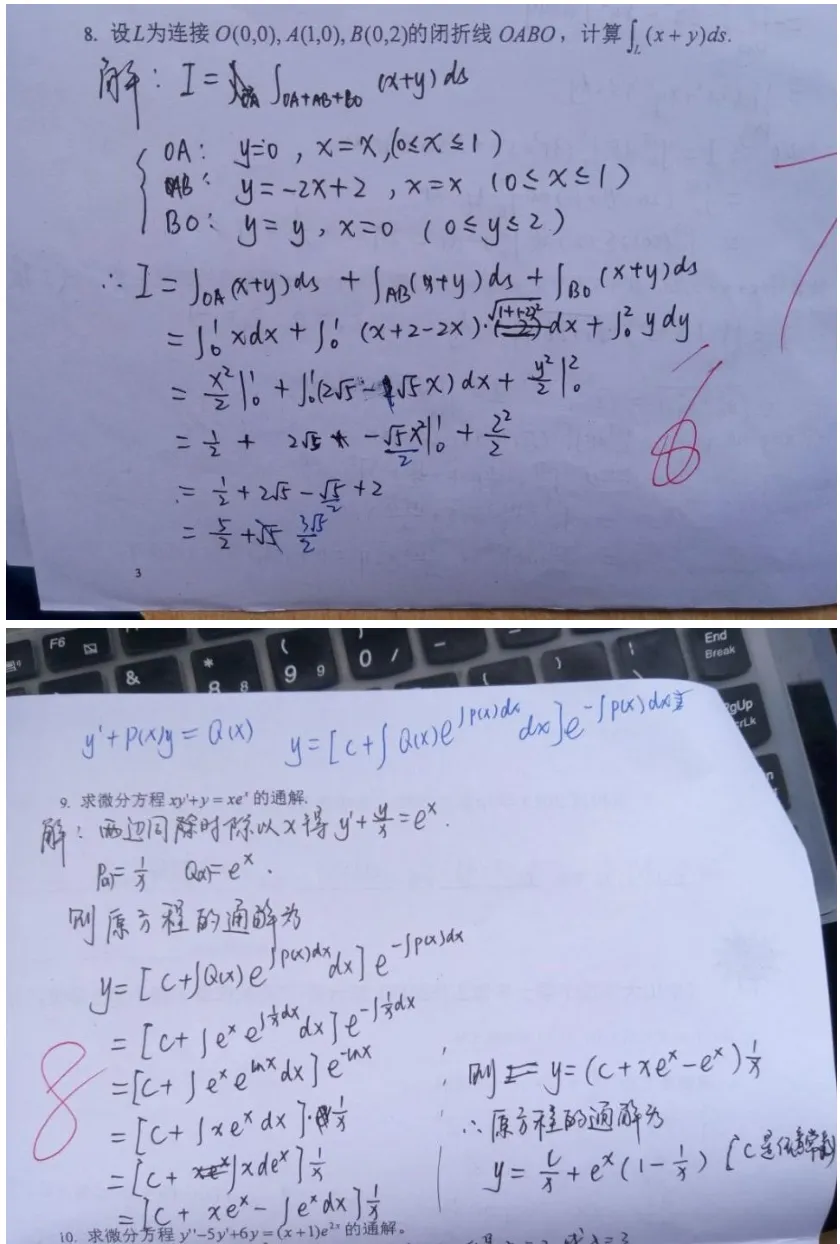 8. 设L为连接 O(0,0), A(1,0), B(0,2)的闭折线 OABO，计算∫_L (x+y)ds.
解：I = ∫_{OA+AB+BO} (x+y) ds
OA： y=0 , x=x,(0≤x≤1)
AB： y=-2x+2 , x=x (0≤x≤1)
BO： y=y, x=0 (0≤y≤2)
∴ I = ∫_{OA} (x+y) ds + ∫_{AB} (x+y) ds + ∫_{BO} (x+y) ds
= ∫_0^1 x dx + ∫_0^1 (x+2-2x)· dx + ∫_0^2 y dy
= x²/2 |_0^1 + ∫_0^1 (2√5 - √5x) dx + y²/2 |_0^2
= 1/2 + 2√5 - √5x²/2 |_0^1 + 2²/2
= 1/2 + 2√5 - √5/2 + 2
= 5/2 + 3√5/2
6
3
F6
&
* 8 8
( 9 9
) 0 /
End
Break
PgUp
crLk
y'+P(x)y = Q(x) y=[c+∫Q(x)e^{∫p(x)dx} dx]e^{-∫p(x)dx}
9. 求微分方程 xy'+y = xe^x 的通解.
解：两边同时除以x得 y'+y/x = e^x.
P(x)= 1/x Q(x)= e^x.
则原方程的通解为
y = [c+∫Q(x) e^{∫p(x)dx} dx] e^{-∫p(x)dx}
= [c+∫e^x e^{∫1/x dx} dx] e^{-∫1/x dx}
= [c+∫e^x e^{lnx} dx] e^{-lnx}
= [c+∫xe^x dx]·1/x
= [c+∫x de^x] 1/x
= [c+ xe^x - ∫e^x dx] 1/x
则 y = (c+xe^x-e^x) 1/x
∴原方程的通解为
y = c/x + e^x (1-1/x) [C是任意常数]
8
10. 求微分方程 y''-5y'+6y = (x+1)e^{2x} 的通解。